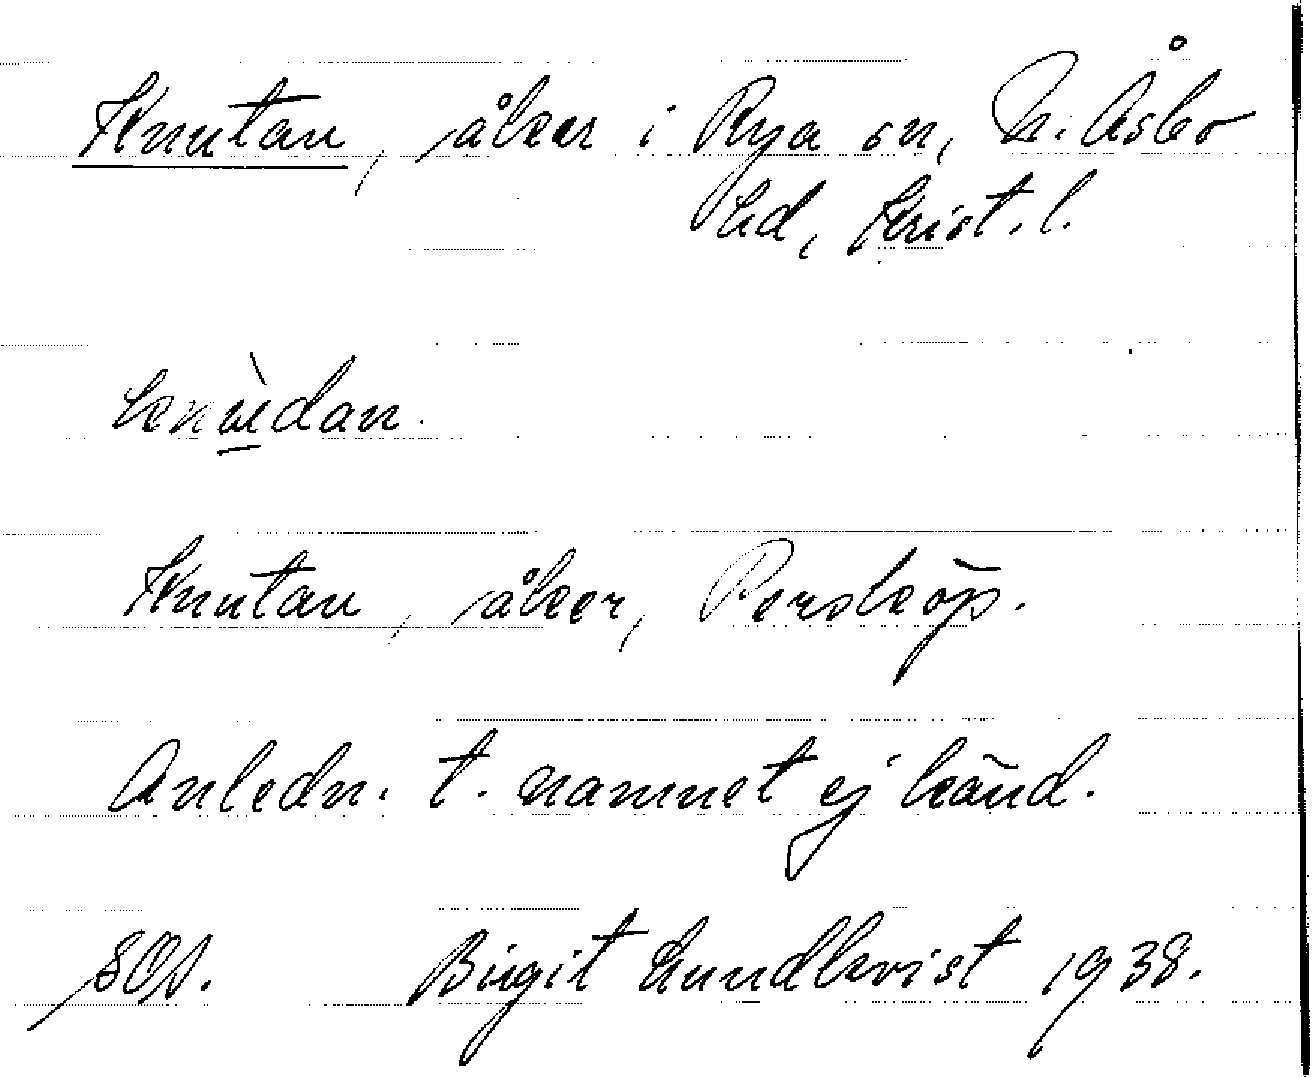 Knutan, åker i Rya sn, N. Åsbo
hd, Krist. l.
knùdan.
Knutan, åker, Perstorp.
Anledn. t. namnet ej känd.
SOA. Birgit Lundkvist 1938.